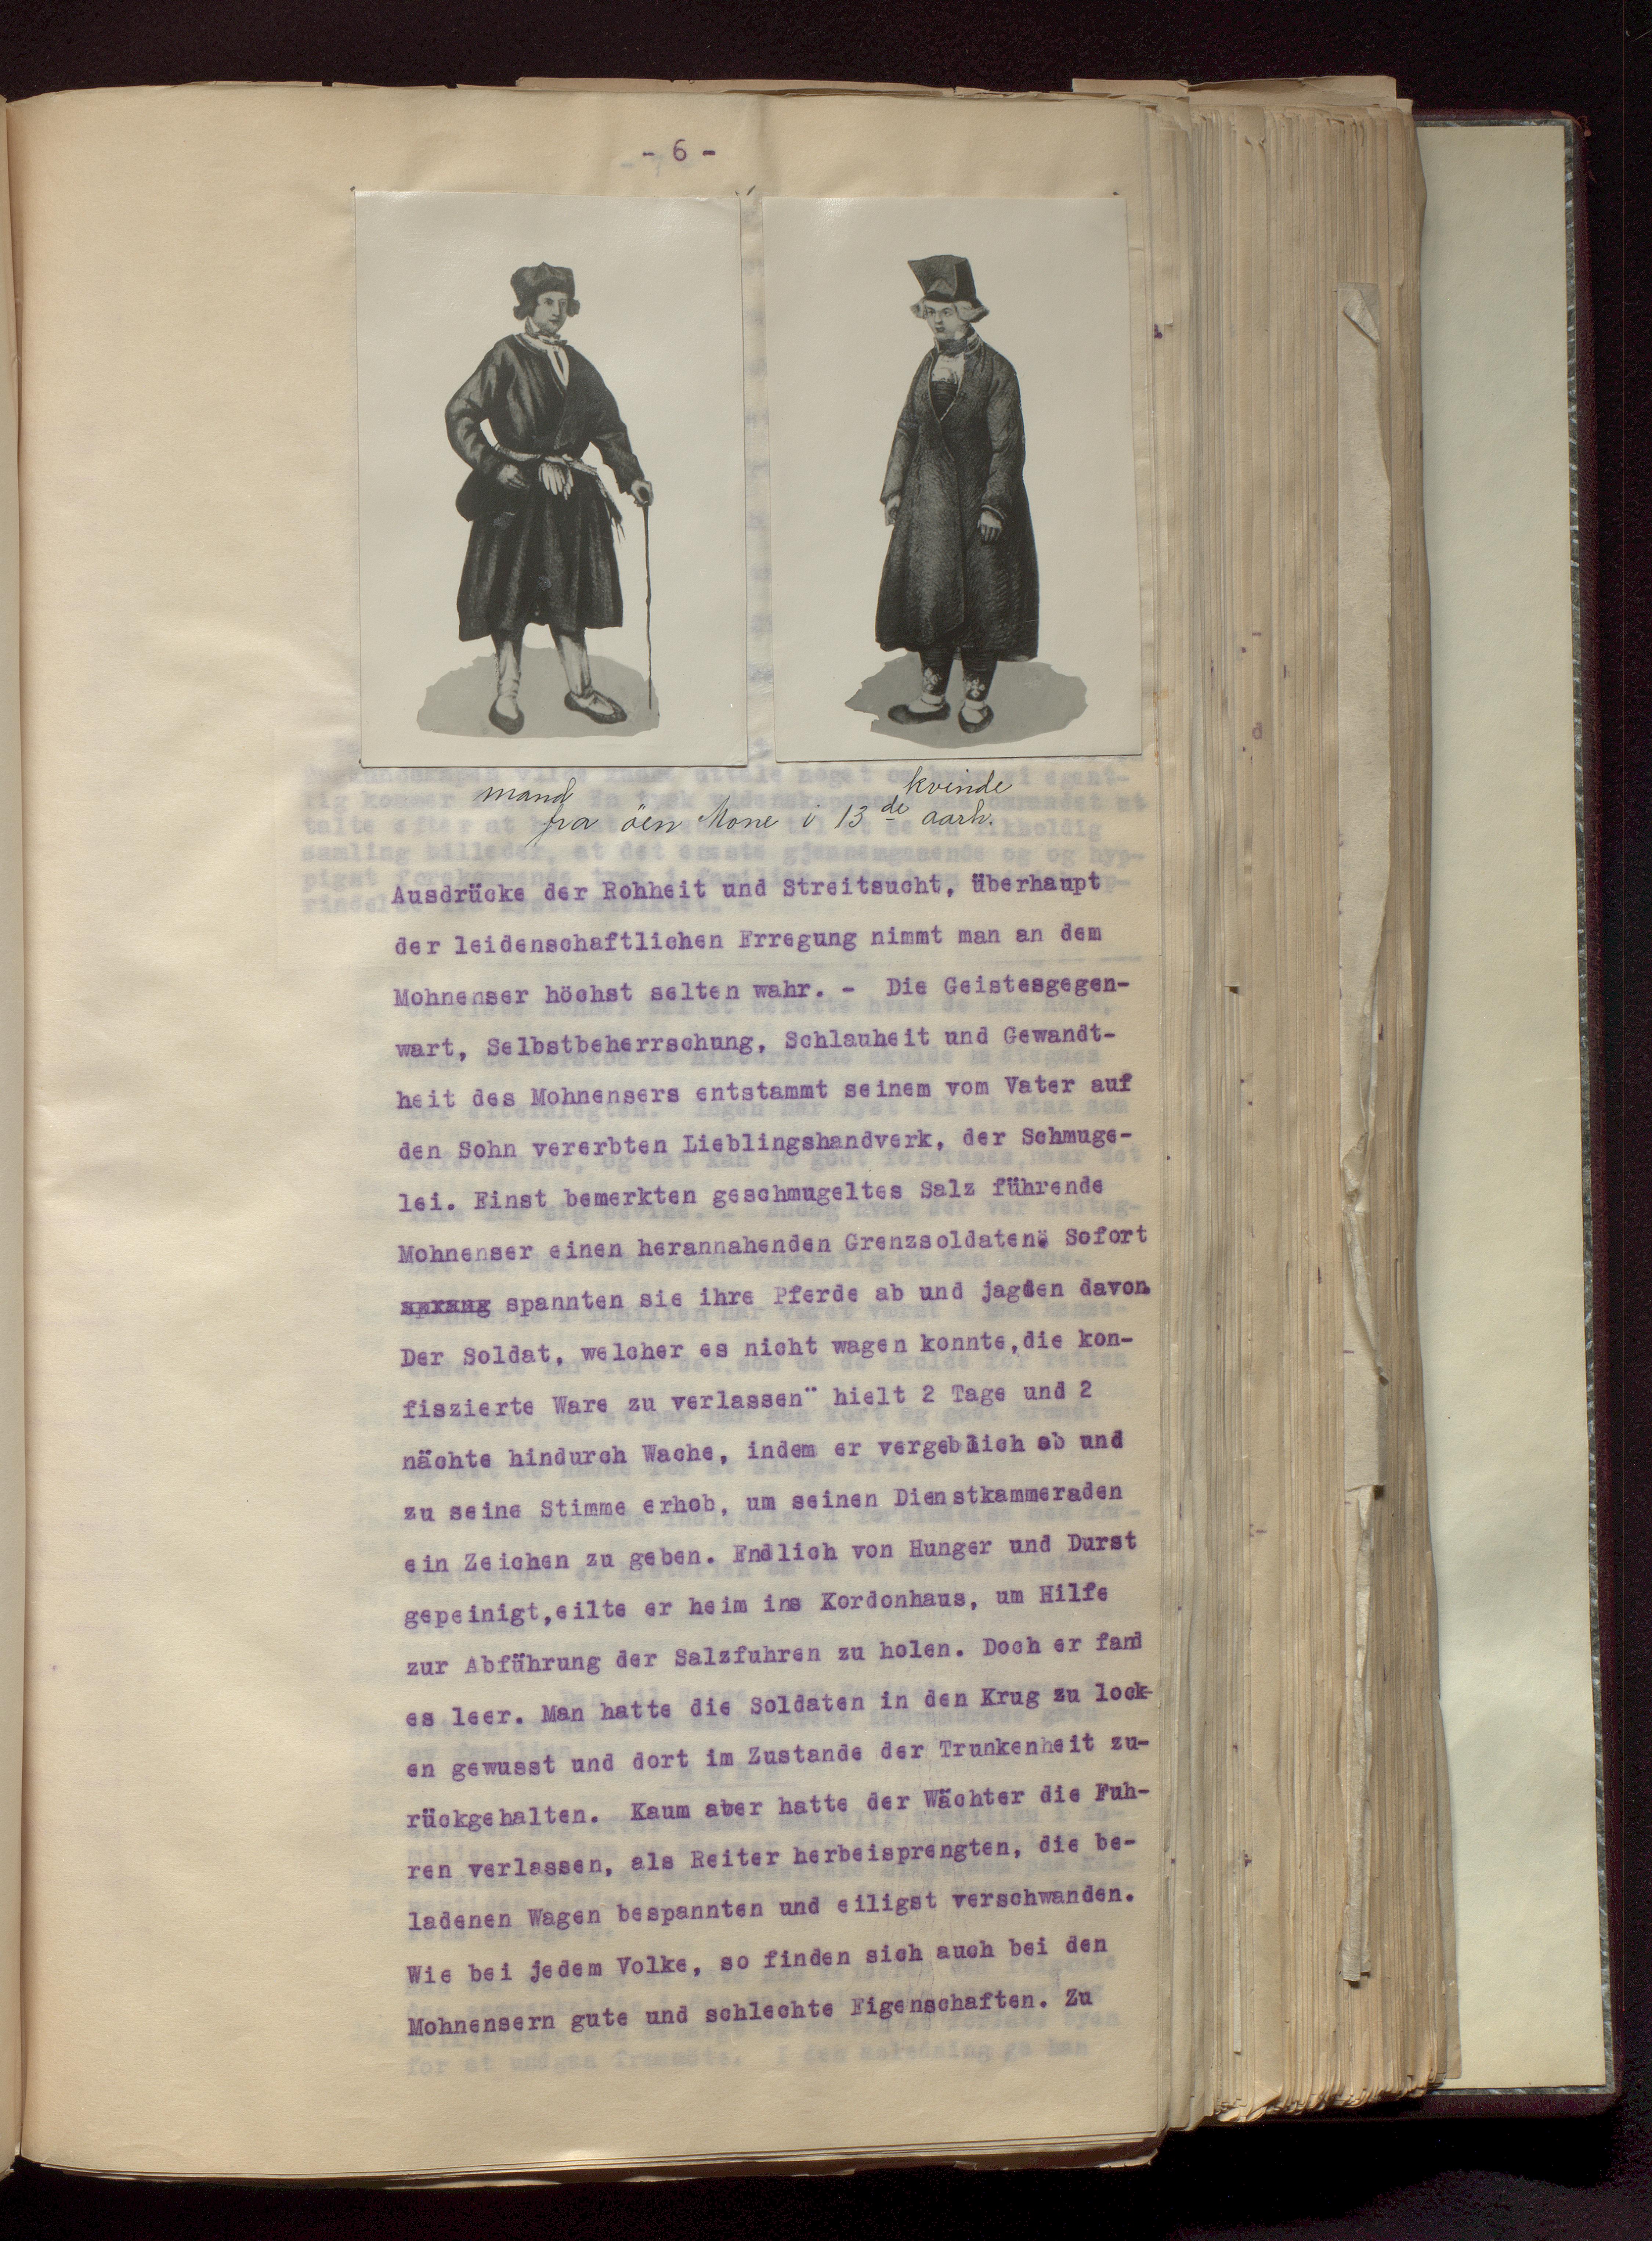 - 6 -
mand kvinde
fra öen Mone i 13de aarh.
Ausdrücke der Rohheit und Streitsucht, überhaupt
der leidenschaftlichen Erregung nimmt man an dem
Mohnenser höchst selten wahr. - Die Geistesgegen-
wart, Selbstbeherrschung, Schlauheit und Gewandt-
heit des Mohnensers entstammt seinem vom Vater auf
den Sohn vererbten Lieblingshandverk, der Schmuge-
lei. Einst bemerkten geschmugeltes Salz führende
Mohnenser einen herannahenden Grenzsoldaten. Sofort
sprang spannten sie ihre Pferde ab und jagden davon.
Der Soldat, welcher es nicht wagen konnte, die kon-
fiszierte Ware zu verlassen" hielt 2 Tage und 2
nächte hindurch Wache, indem er vergeblich ab und
zu seine Stimme erhob, um seinen Dienstkammeraden
ein Zeichen zu geben. Endlich von Hunger und Durst
gepeinigt, eilte er heim ins Kordonhaus, um Hilfe
zur Abführung der Salzfuhren zu holen. Doch er fand
es leer. Man hatte die Soldaten in den Krug zu lock-
en gewusst und dort im Zustande der Trunkenheit zu-
rückgehalten. Kaum aber hatte der Wächter die Fuh-
ren verlassen, als Reiter herbeisprengten, die be-
ladenen Wagen bespannten und eiligst verschwanden.
Wie bei jedem Volke, so finden sich auch bei den
Mohnensern gute und schlechte Eigenschaften. Zu